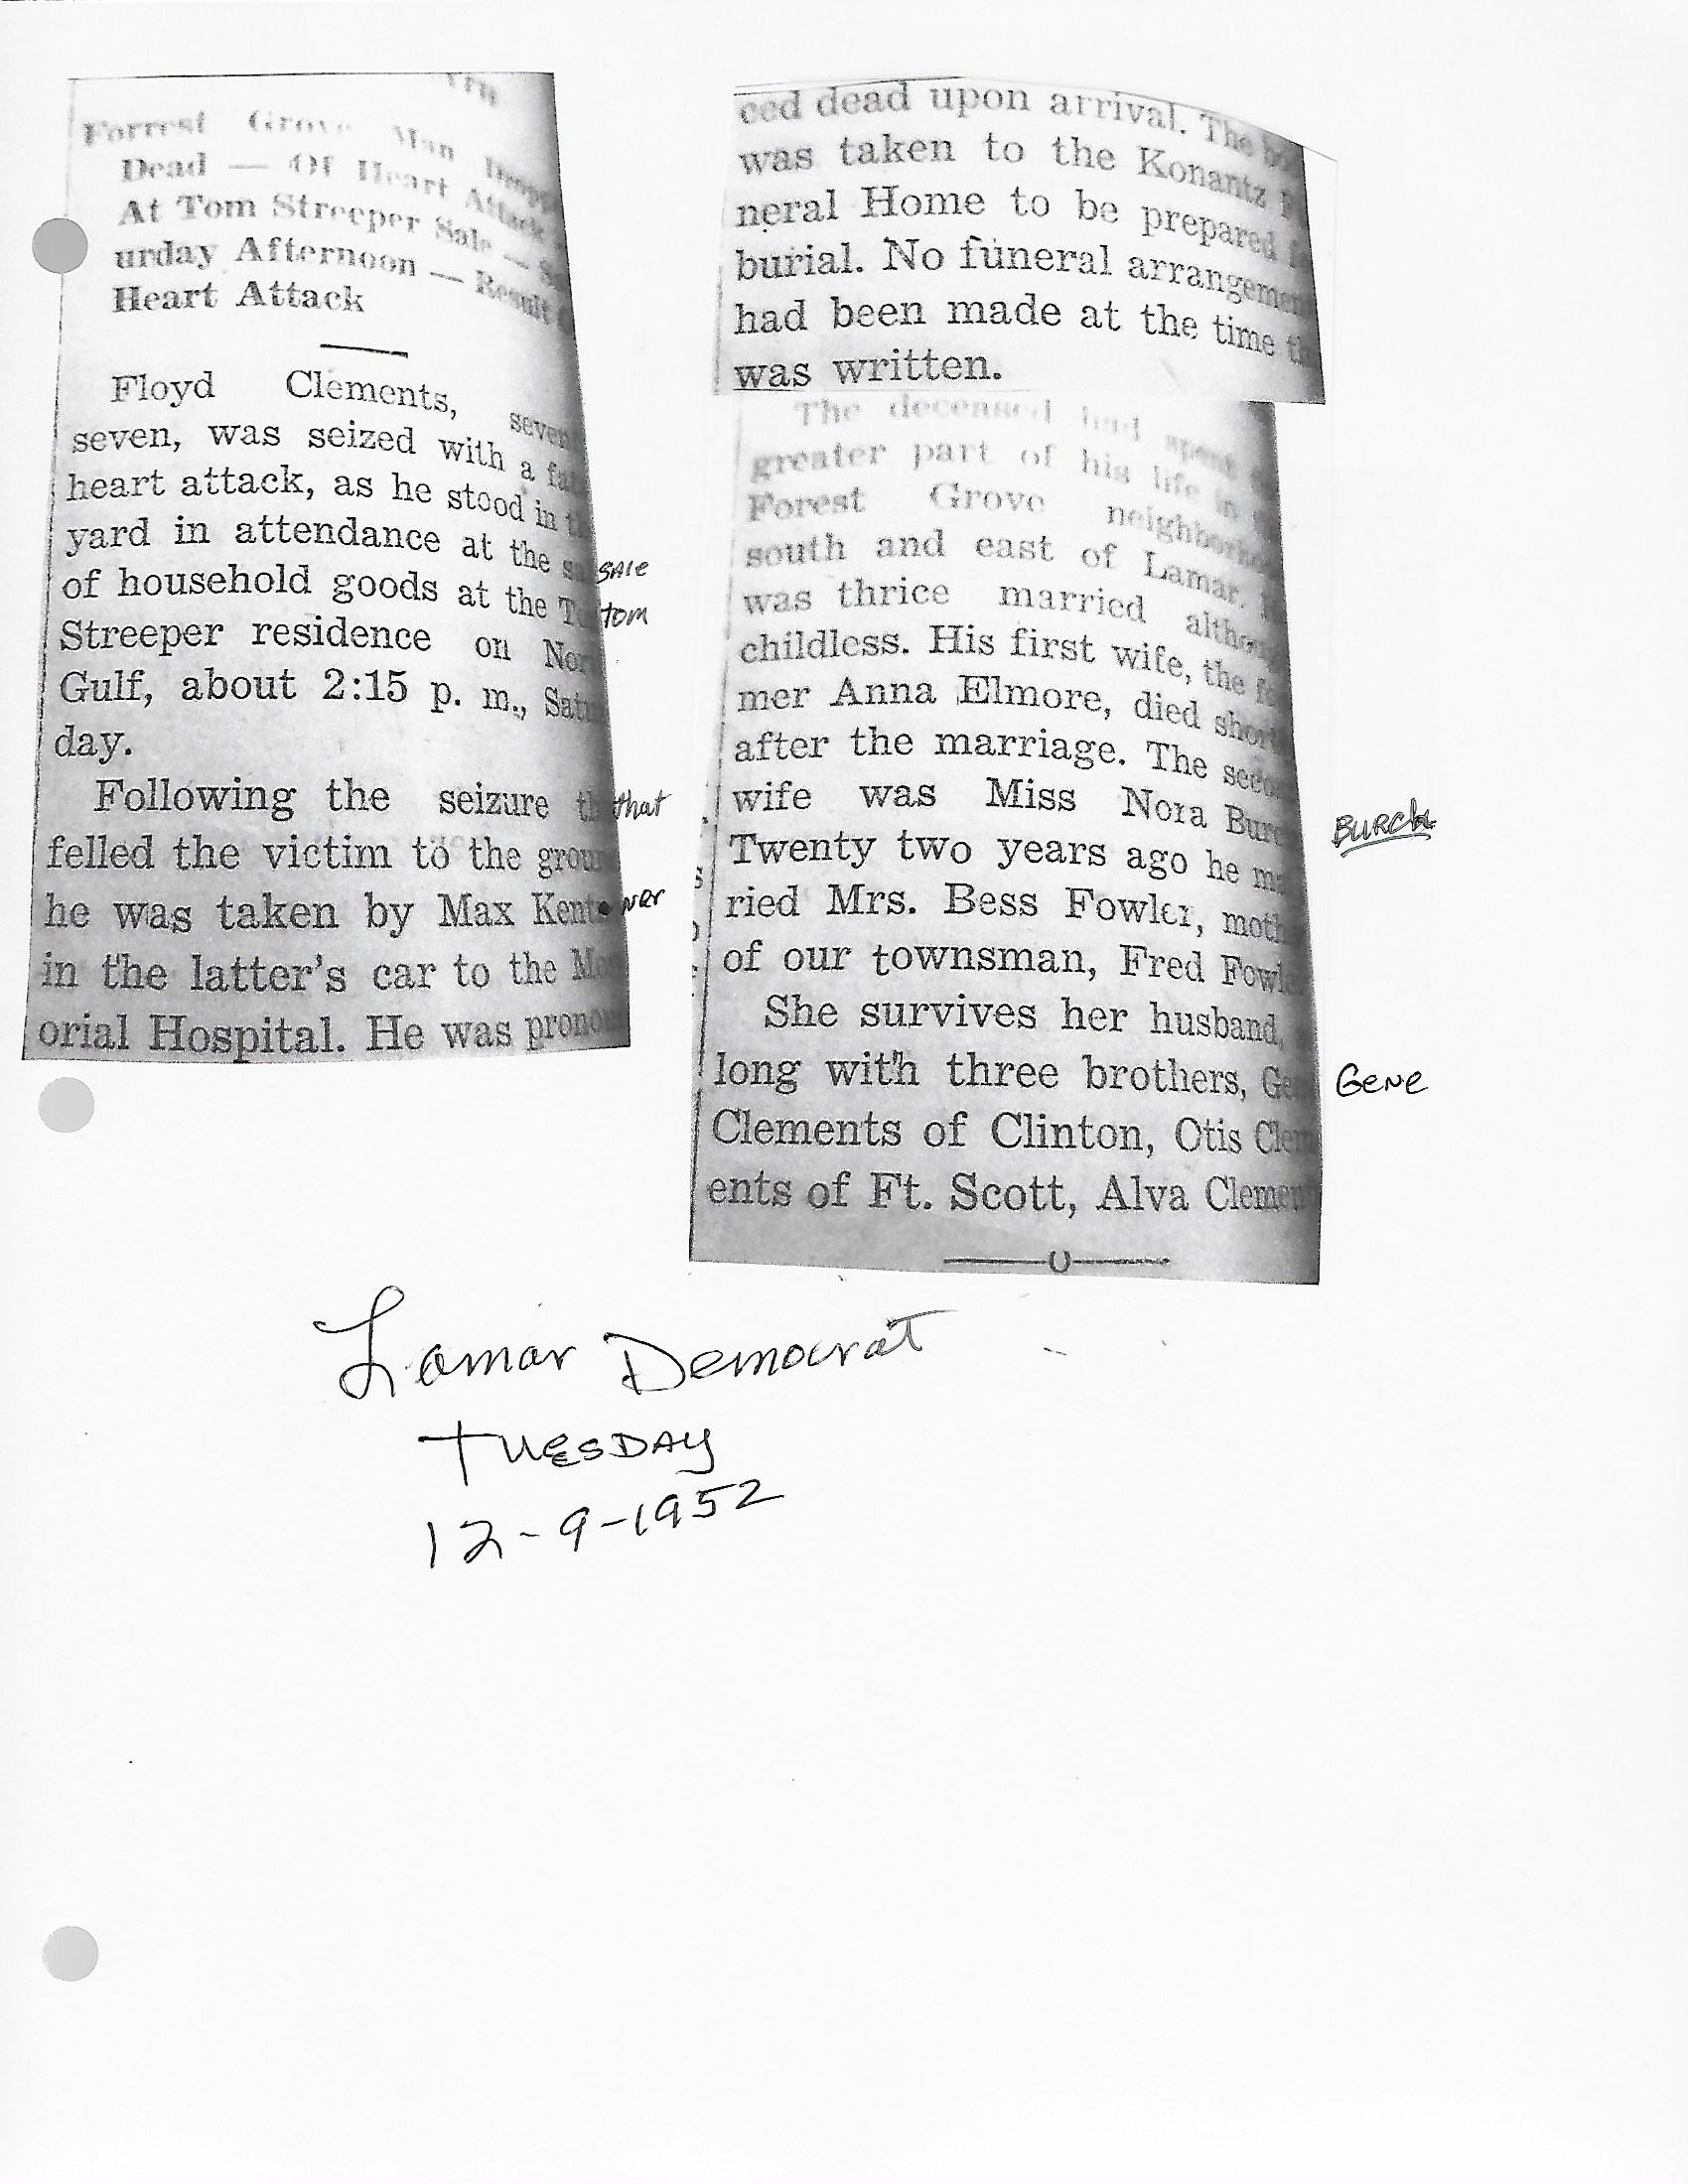 Forrest Grove Man Dropp
Dead — Of Heart Attack
At Tom Streeper Sale — S
urday Afternoon — Result
Heart Attack
Floyd Clements, seven
seven, was seized with a fa
heart attack, as he stood in t
yard in attendance at the s SALE
of household goods at the T TOM
Streeper residence on Nor
Gulf, about 2:15 p. m., Satu
day.
Following the seizure th that
felled the victim to the groun
he was taken by Max Kent ner
in the latter's car to the M
orial Hospital. He was prono
ced dead upon arrival. The bo
was taken to the Konantz F
neral Home to be prepared f
burial. No funeral arrangemen
had been made at the time th
was written.
The deceased had spent
greater part of his life in
Forest Grove neighborho
south and east of Lamar.
was thrice married althou
childless. His first wife, the fo
mer Anna Elmore, died short
after the marriage. The seco
wife was Miss Nora Burc BURCH
Twenty two years ago he ma
ried Mrs. Bess Fowler, moth
of our townsman, Fred Fowle
She survives her husband,
long with three brothers, Ge GENE
Clements of Clinton, Otis Clem
ents of Ft. Scott, Alva Clemen
Lamar Democrat
TUESDAY
12-9-1952